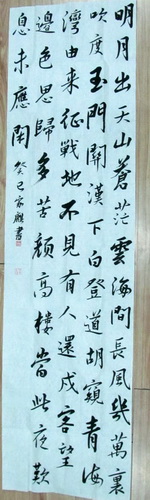 明月出天山蒼茫雲海間長風幾萬裏
吹度玉門關漢下白登道胡窺青海
灣由來征戰地不見有人還戍客望
邊色思歸多苦顏高樓當此夜歎
息未應閑
癸巳家麒書